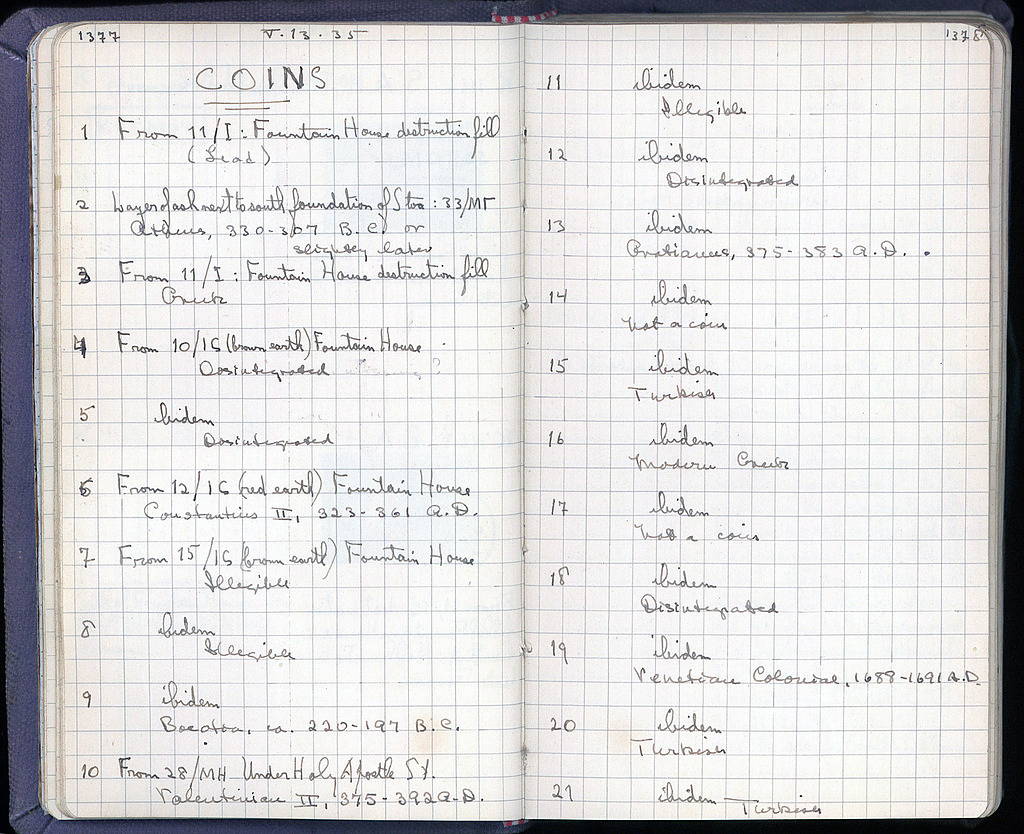 1377 V.13.35
COINS
1 From 11/I: Fountain House destruction fill
(Lead)
2 Layer of ash next to south foundation of Stoa: 33/ΜΓ
Athens, 330-307 B.C. or
slightly later
3 From 11/I: Fountain House destruction fill
Greek
4 From 10/ΙϚ (brown earth) Fountain House
Disintegrated
5 ibidem
Disintegrated
6 From 12/ΙϚ (red earth) Fountain House
Constantius II, 323-361 A.D.
7 From 15/ΙϚ (brown earth) Fountain House
Illegible
8 ibidem
Illegible
9 ibidem
Boeotia, ca. 220-197 B.C.
10 From 28/ΜΗ Under Holy Apostle St.
Valentinian II, 375-392 A.D.
1378
11 ibidem
Illegible
12 ibidem
Disintegrated
13 ibidem
Gratianus, 375-383 A.D.
14 ibidem
Not a coin
15 ibidem
Turkish
16 ibidem
Modern Greek
17 ibidem
Not a coin
18 ibidem
Disintegrated
19 ibidem
Venetian Colonial, 1688-1691 A.D.
20 ibidem
Turkish
21 ibidem Turkish